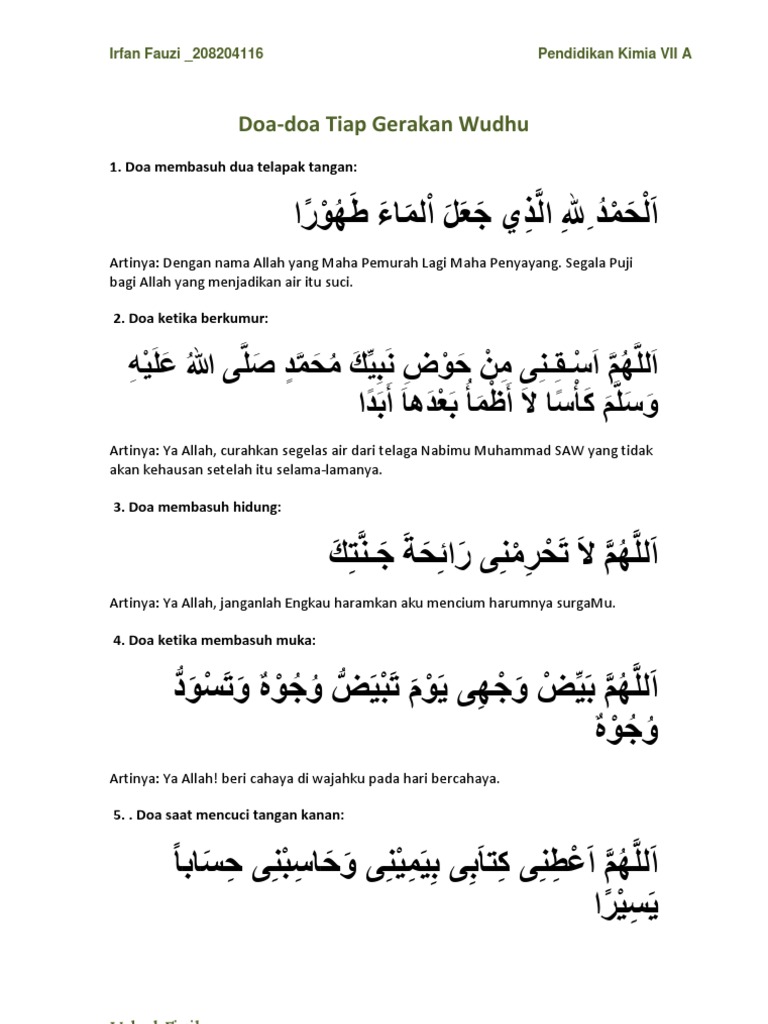 Irfan Fauzi _208204116 Pendidikan Kimia VII A
Doa-doa Tiap Gerakan Wudhu
1. Doa membasuh dua telapak tangan:
اَلْحَمْدُ ِللهِ الَّذِي جَعَلَ اْلمَاءَ طَهُوْرًا
Artinya: Dengan nama Allah yang Maha Pemurah Lagi Maha Penyayang. Segala Puji
bagi Allah yang menjadikan air itu suci.
2. Doa ketika berkumur:
اَللَّهُمَّ اَسْـقِـنِى مِنْ حَوْضِ نَبِيِّكَ مُحَمَّدٍ صَلَّى اللهُ عَلَيْهِ
وَسَلَّمَ كَأْسًا لاَ أَظْمَأُ بَعْدَهاَ أَبَدًا
Artinya: Ya Allah, curahkan segelas air dari telaga Nabimu Muhammad SAW yang tidak
akan kehausan setelah itu selama-lamanya.
3. Doa membasuh hidung:
اَللَّهُمَّ لاَ تَحْرِمْنِى رَائِحَةَ جَـنَّتِكَ
Artinya: Ya Allah, janganlah Engkau haramkan aku mencium harumnya surgaMu.
4. Doa ketika membasuh muka:
اَللَّهُمَّ بَيِّضْ وَجْهِى يَوْمَ تَبْيَضُّ وُجُوْهٌ وَتَسْوَدُّ
وُجُوْهٌ
Artinya: Ya Allah! beri cahaya di wajahku pada hari bercahaya.
5. . Doa saat mencuci tangan kanan:
اَللَّهُمَّ اَعْطِنِى كِتاَبِى بِيَمِيْنِى وَحَاسِبْنِى حِسَاباً
يَسِيْرًا